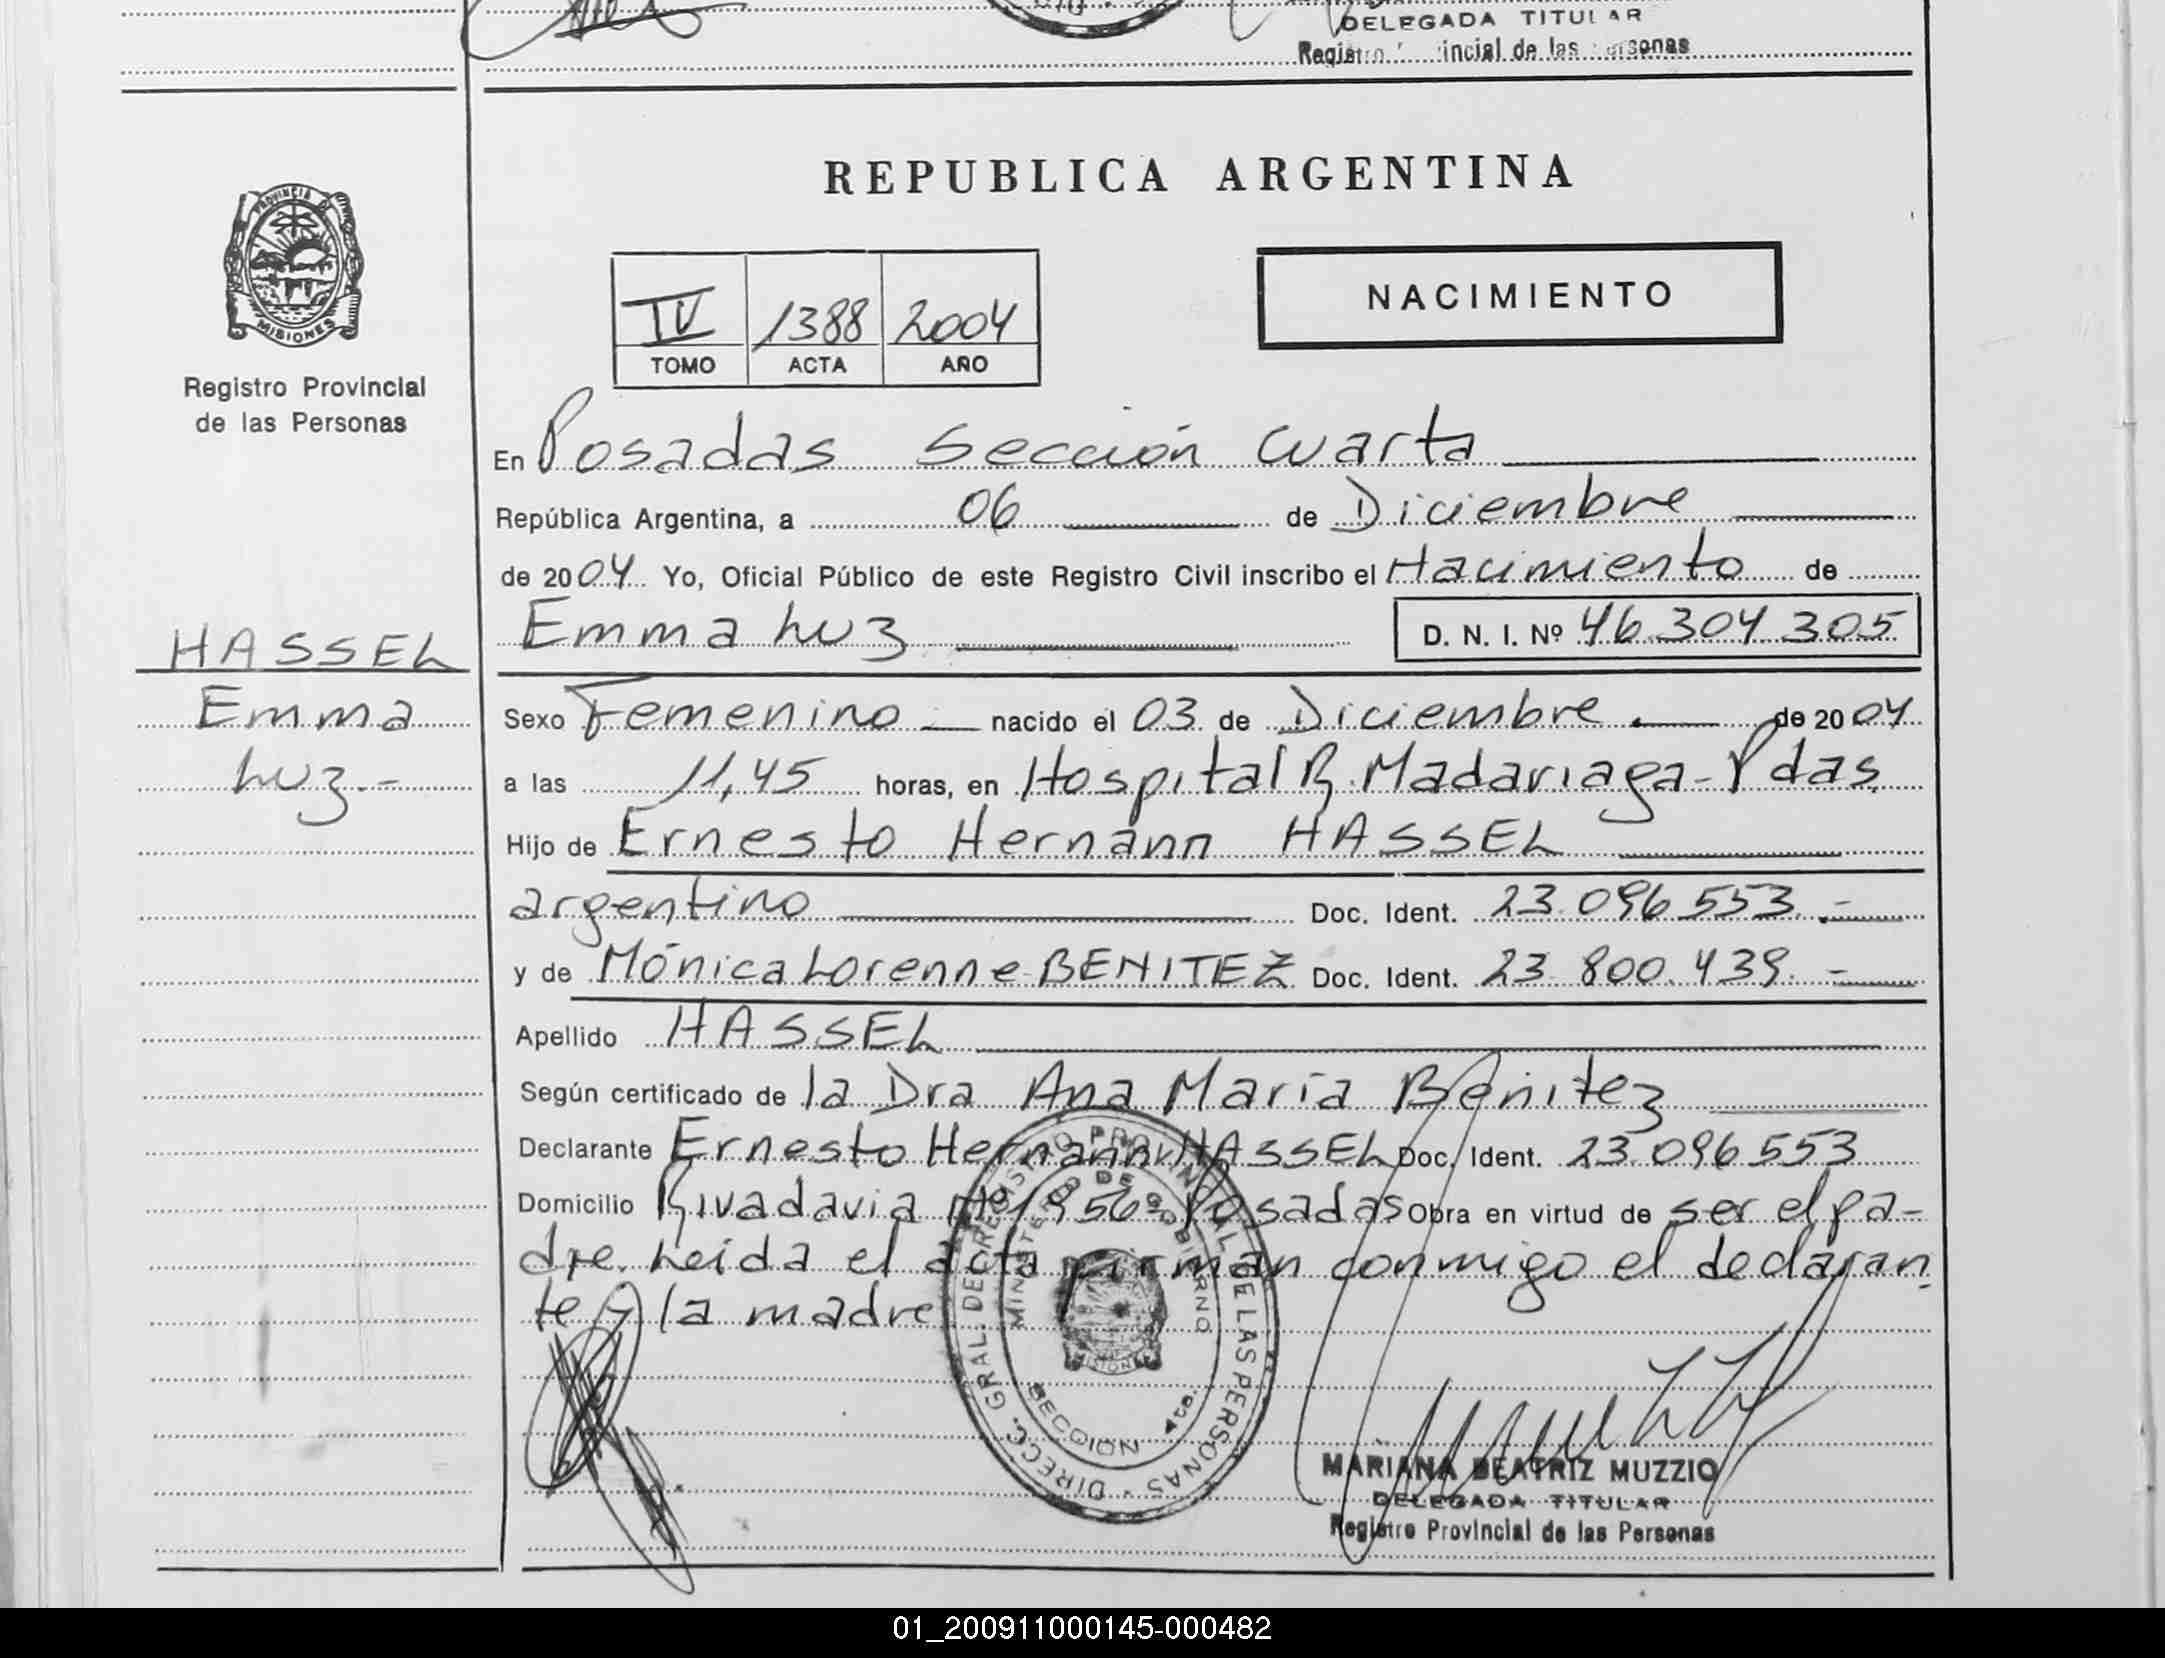 DELEGADA TITULAR
Registro Provincial de las Personas
REPUBLICA ARGENTINA
PROVINCIA DE
MISIONES
Registro Provincial
de las Personas
IV 1388 2004
TOMO ACTA AÑO
NACIMIENTO
En Posadas Sección Cuarta
República Argentina, a 06 de Diciembre
de 2004 Yo, Oficial Público de este Registro Civil inscribo el Nacimiento de
Emma Luz D. N. I. Nº 46.304.305
HASSEL
Emma
Luz.-
Sexo Femenino nacido el 03 de Diciembre de 2004
a las 11,45 horas, en Hospital R. Madariaga-Pdas.
Hijo de Ernesto Hernann HASSEL
argentino Doc. Ident. 23.096.553.-
y de Mónica Lorenne BENITEZ Doc. Ident. 23.800.439.-
Apellido HASSEL
Según certificado de la Dra Ana María Benitez
Declarante Ernesto Hernann HASSEL Doc. Ident. 23.096.553
Domicilio Rivadavia Nº 1956- Posadas Obra en virtud de ser el pa-
dre. Leida el acta firman conmigo el declaran-
te y la madre
DIRECC. GRAL. DE REGISTRO PROVINCIAL DE LAS PERSONAS
MINISTERIO DE GOBIERNO
MISIONES
SECCION 4ta.
MARIANA BEATRIZ MUZZIO
DELEGADA TITULAR
Registro Provincial de las Personas
01_200911000145-000482